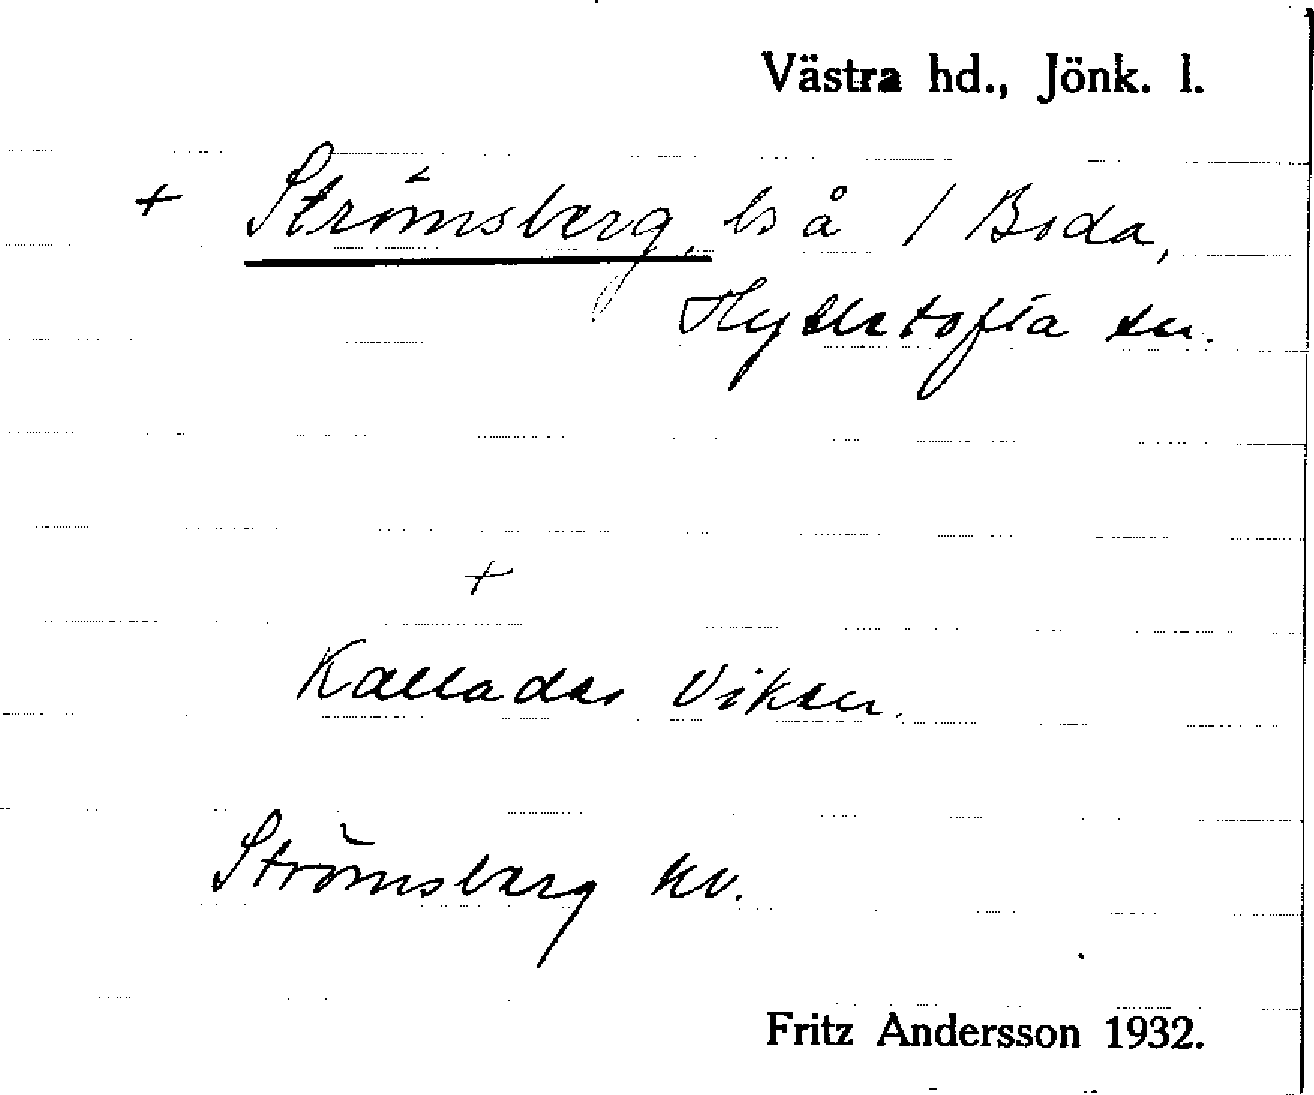 Västra hd., Jönk. l.
+ Strömsberg, ls å 1 Boda,
Hyltetofta sn.
+
Kallades Viken.
Strömsberg kv.
Fritz Andersson 1932.